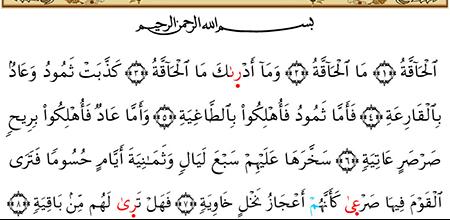 بسم الله الرحمن الرحيم
ٱلْحَآقَّةُ ﴿١﴾ مَا ٱلْحَآقَّةُ ﴿٢﴾ وَمَآ أَدْرَىٰكَ مَا ٱلْحَآقَّةُ ﴿٣﴾ كَذَّبَتْ ثَمُودُ وَعَادٌۢ
بِٱلْقَارِعَةِ ﴿٤﴾ فَأَمَّا ثَمُودُ فَأُهْلِكُوا۟ بِٱلطَّاغِيَةِ ﴿٥﴾ وَأَمَّا عَادٌ فَأُهْلِكُوا۟ بِرِيحٍ
صَرْصَرٍ عَاتِيَةٍ ﴿٦﴾ سَخَّرَهَا عَلَيْهِمْ سَبْعَ لَيَالٍ وَثَمَـٰنِيَةَ أَيَّامٍ حُسُومًا فَتَرَى
ٱلْقَوْمَ فِيهَا صَرْعَىٰ كَأَنَّهُمْ أَعْجَازُ نَخْلٍ خَاوِيَةٍ ﴿٧﴾ فَهَلْ تَرَىٰ لَهُم مِّنۢ بَاقِيَةٍ ﴿٨﴾